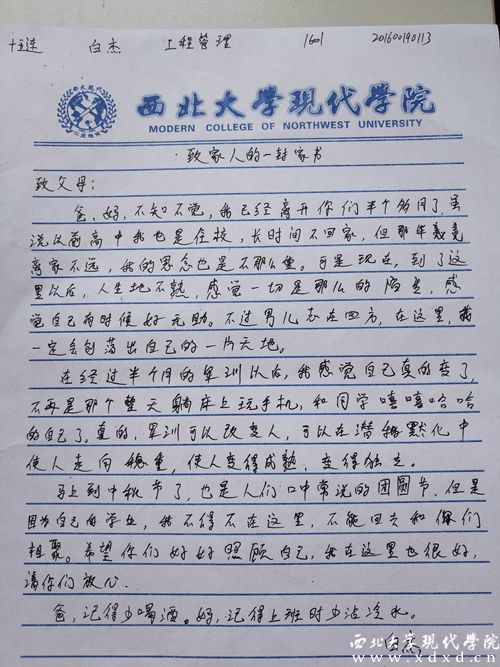 十五连 白杰 工程管理 1601 201600190113
西北大学现代学院
MODERN COLLEGE OF NORTHWEST UNIVERSITY
致家人的一封家书
致父母:
爸、妈,不知不觉,我已经离开你们半个多月了,虽
说以前高中我也是住校,长时间不回家,但那毕竟
离家不远,我的思念也是不那么重。可是现在,到了这
里以后,人生地不熟,感觉一切是那么的陌生,感
觉自己有时候好无助。不过男儿志在四方,在这里,我
一定会创荡出自己的一片天地。
在经过半个月的军训以后,我感觉自己真的变了,
不再是那个整天躺床上玩手机,和同学嘻嘻哈哈
的自己了。真的,军训可以改变人,可以在潜移默化中
使人走向稳重,使人变得成熟,变得独立。
马上到中秋节了,也是人们口中常说的团圆节,但是
因为自己的学业,我不得不在这里,不能回去和你们
相聚。希望你们好好照顾自己,我在这里也很好,
请你们放心.
爸,记得少喝酒。妈,记得上班时少沾冷水。
白杰
西北大学现代学院
www.xdxd.cn